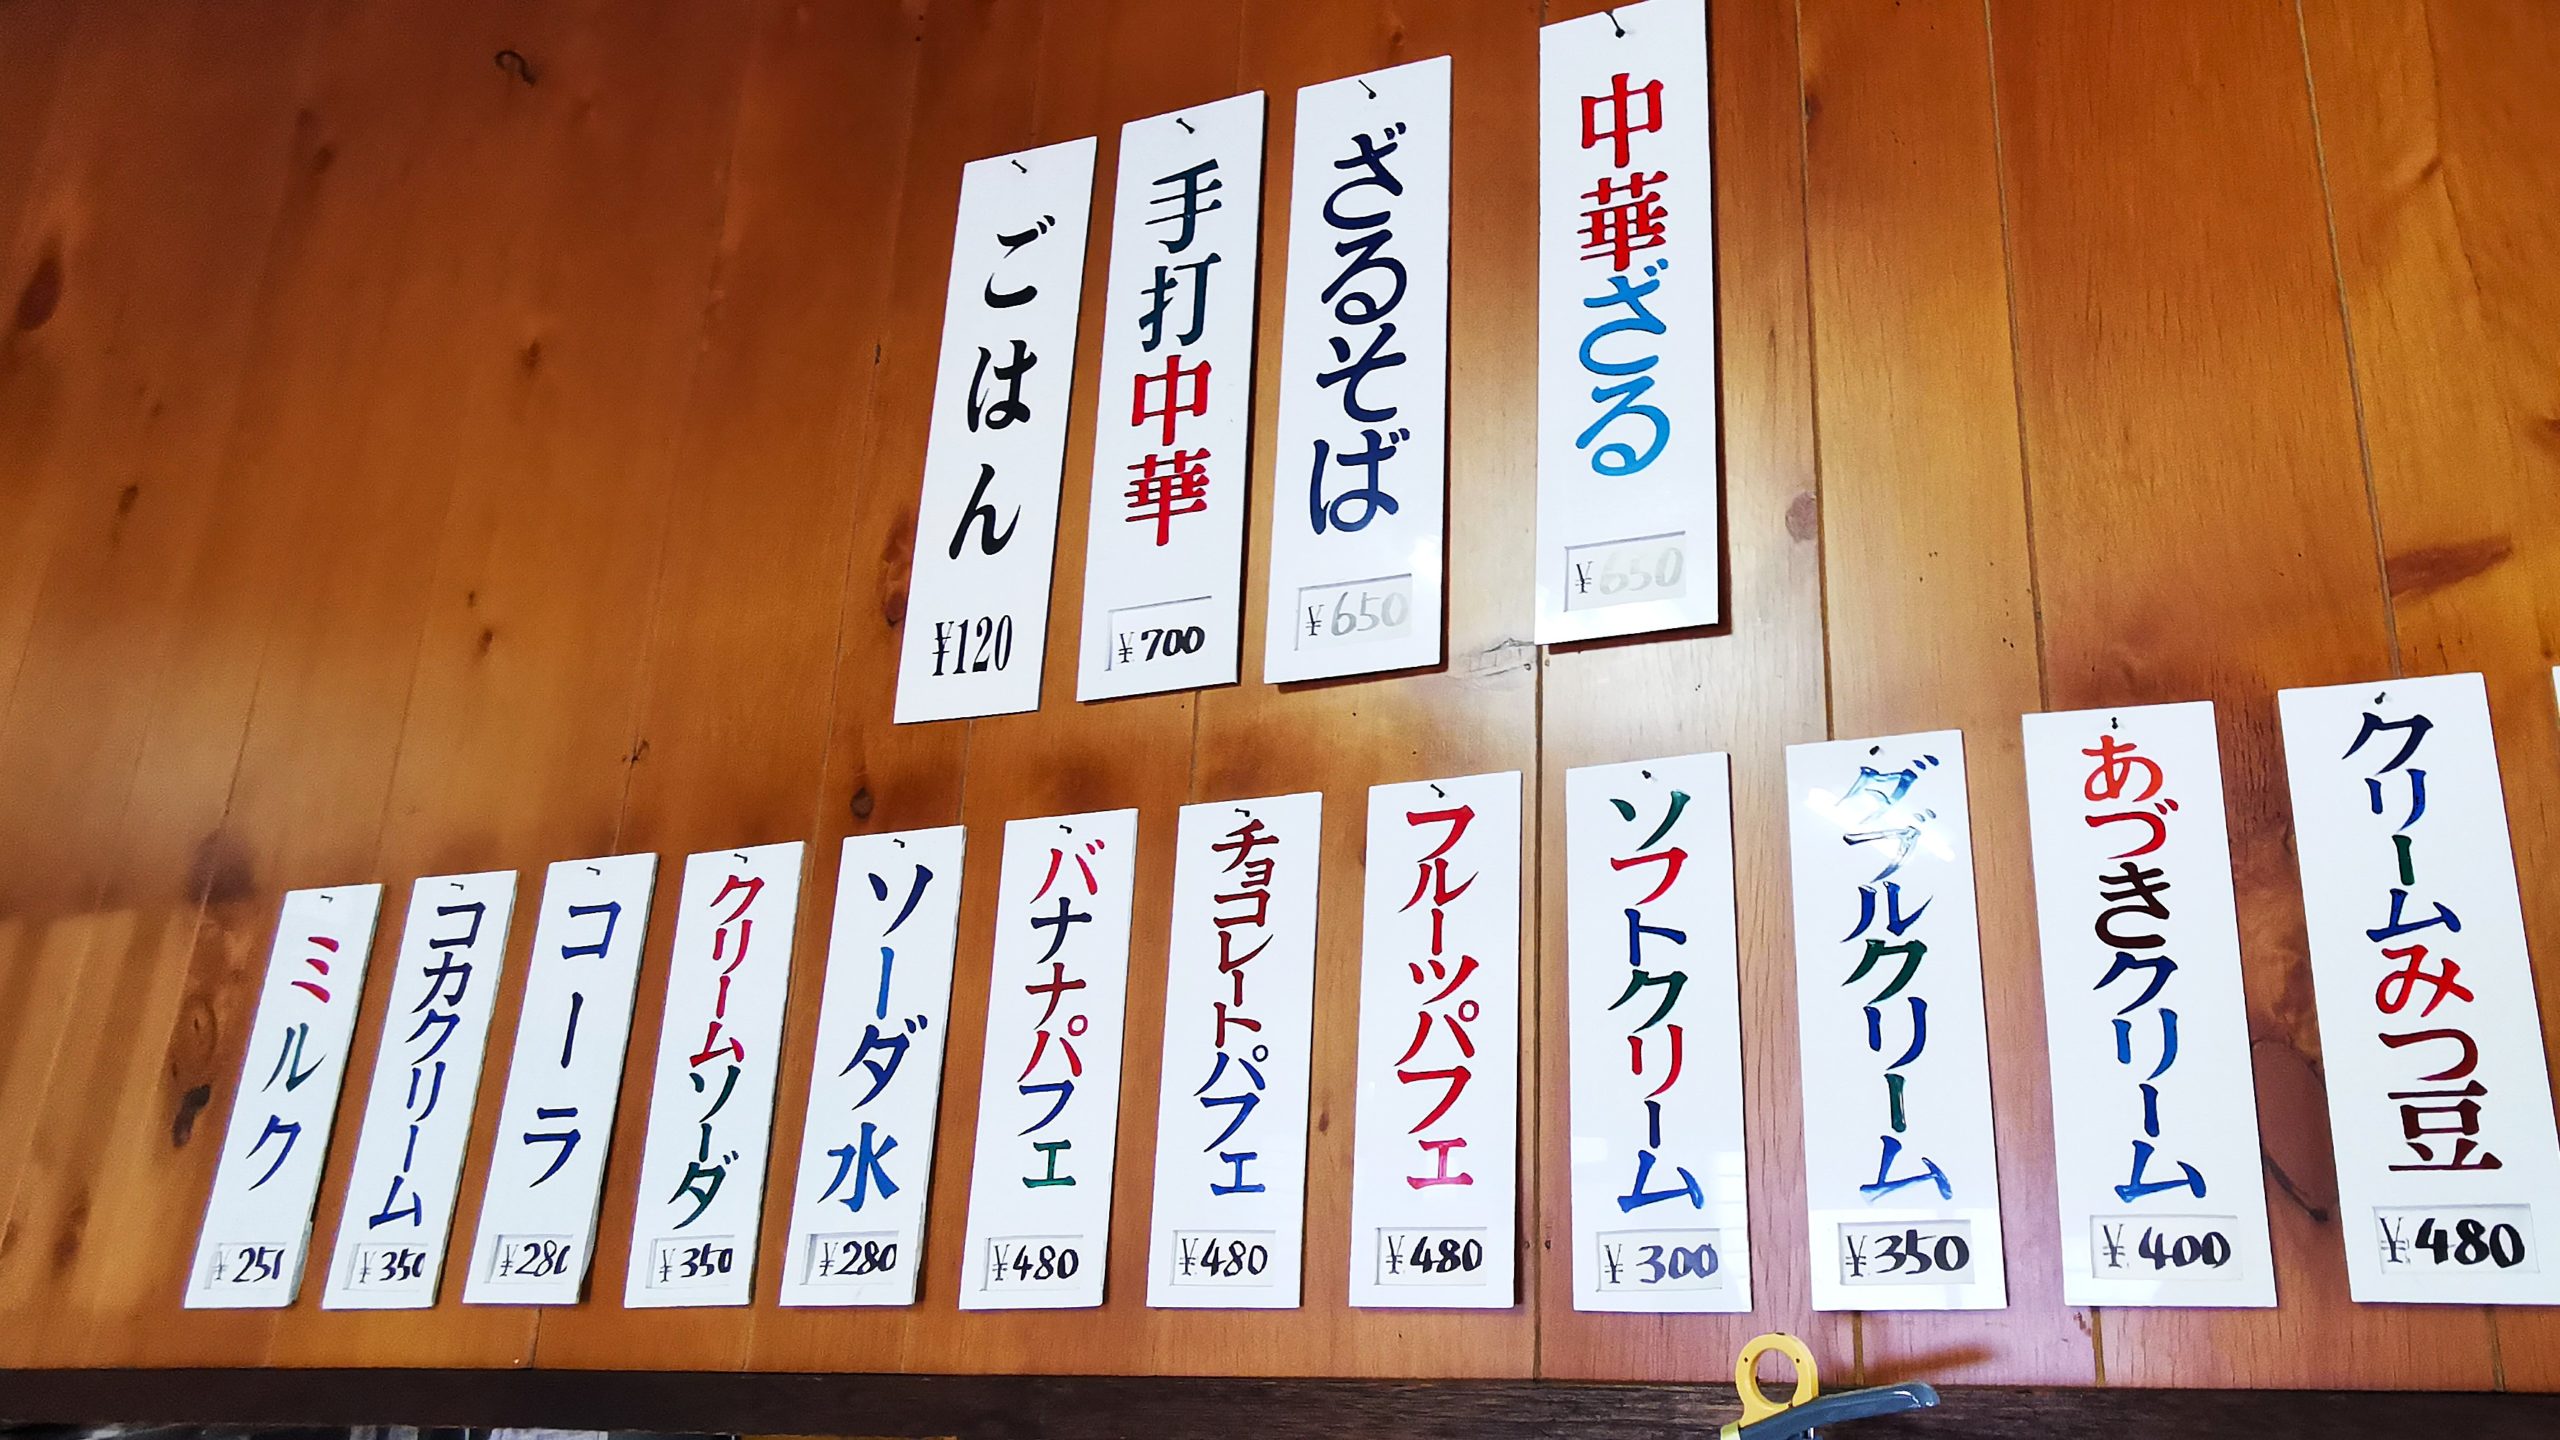 中華ざる
¥650
ざるそば
¥650
手打中華
¥700
ごはん
¥120
クリームみつ豆
¥480
あづきクリーム
¥400
ダブルクリーム
¥350
ソフトクリーム
¥300
フルーツパフェ
¥480
チョコレートパフェ
¥480
バナナパフェ
¥480
ソーダ水
¥280
クリームソーダ
¥350
コーラ
¥280
コカクリーム
¥350
ミルク
¥250